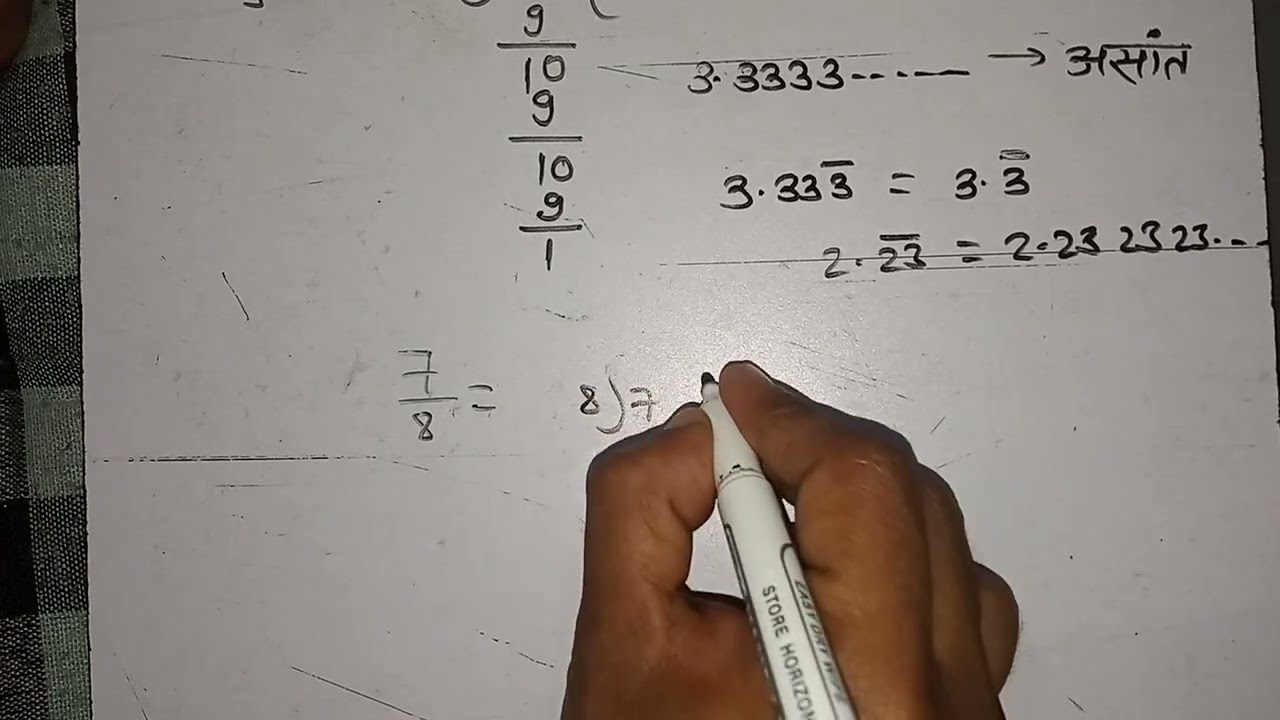 9
10
9
10
9
1
3.3333...... → असांत
3.333̅ = 3.3̅
2.2̅3̅ = 2.232323...
7/8 = 8)7
EASY DRY W
STORE HORIZON